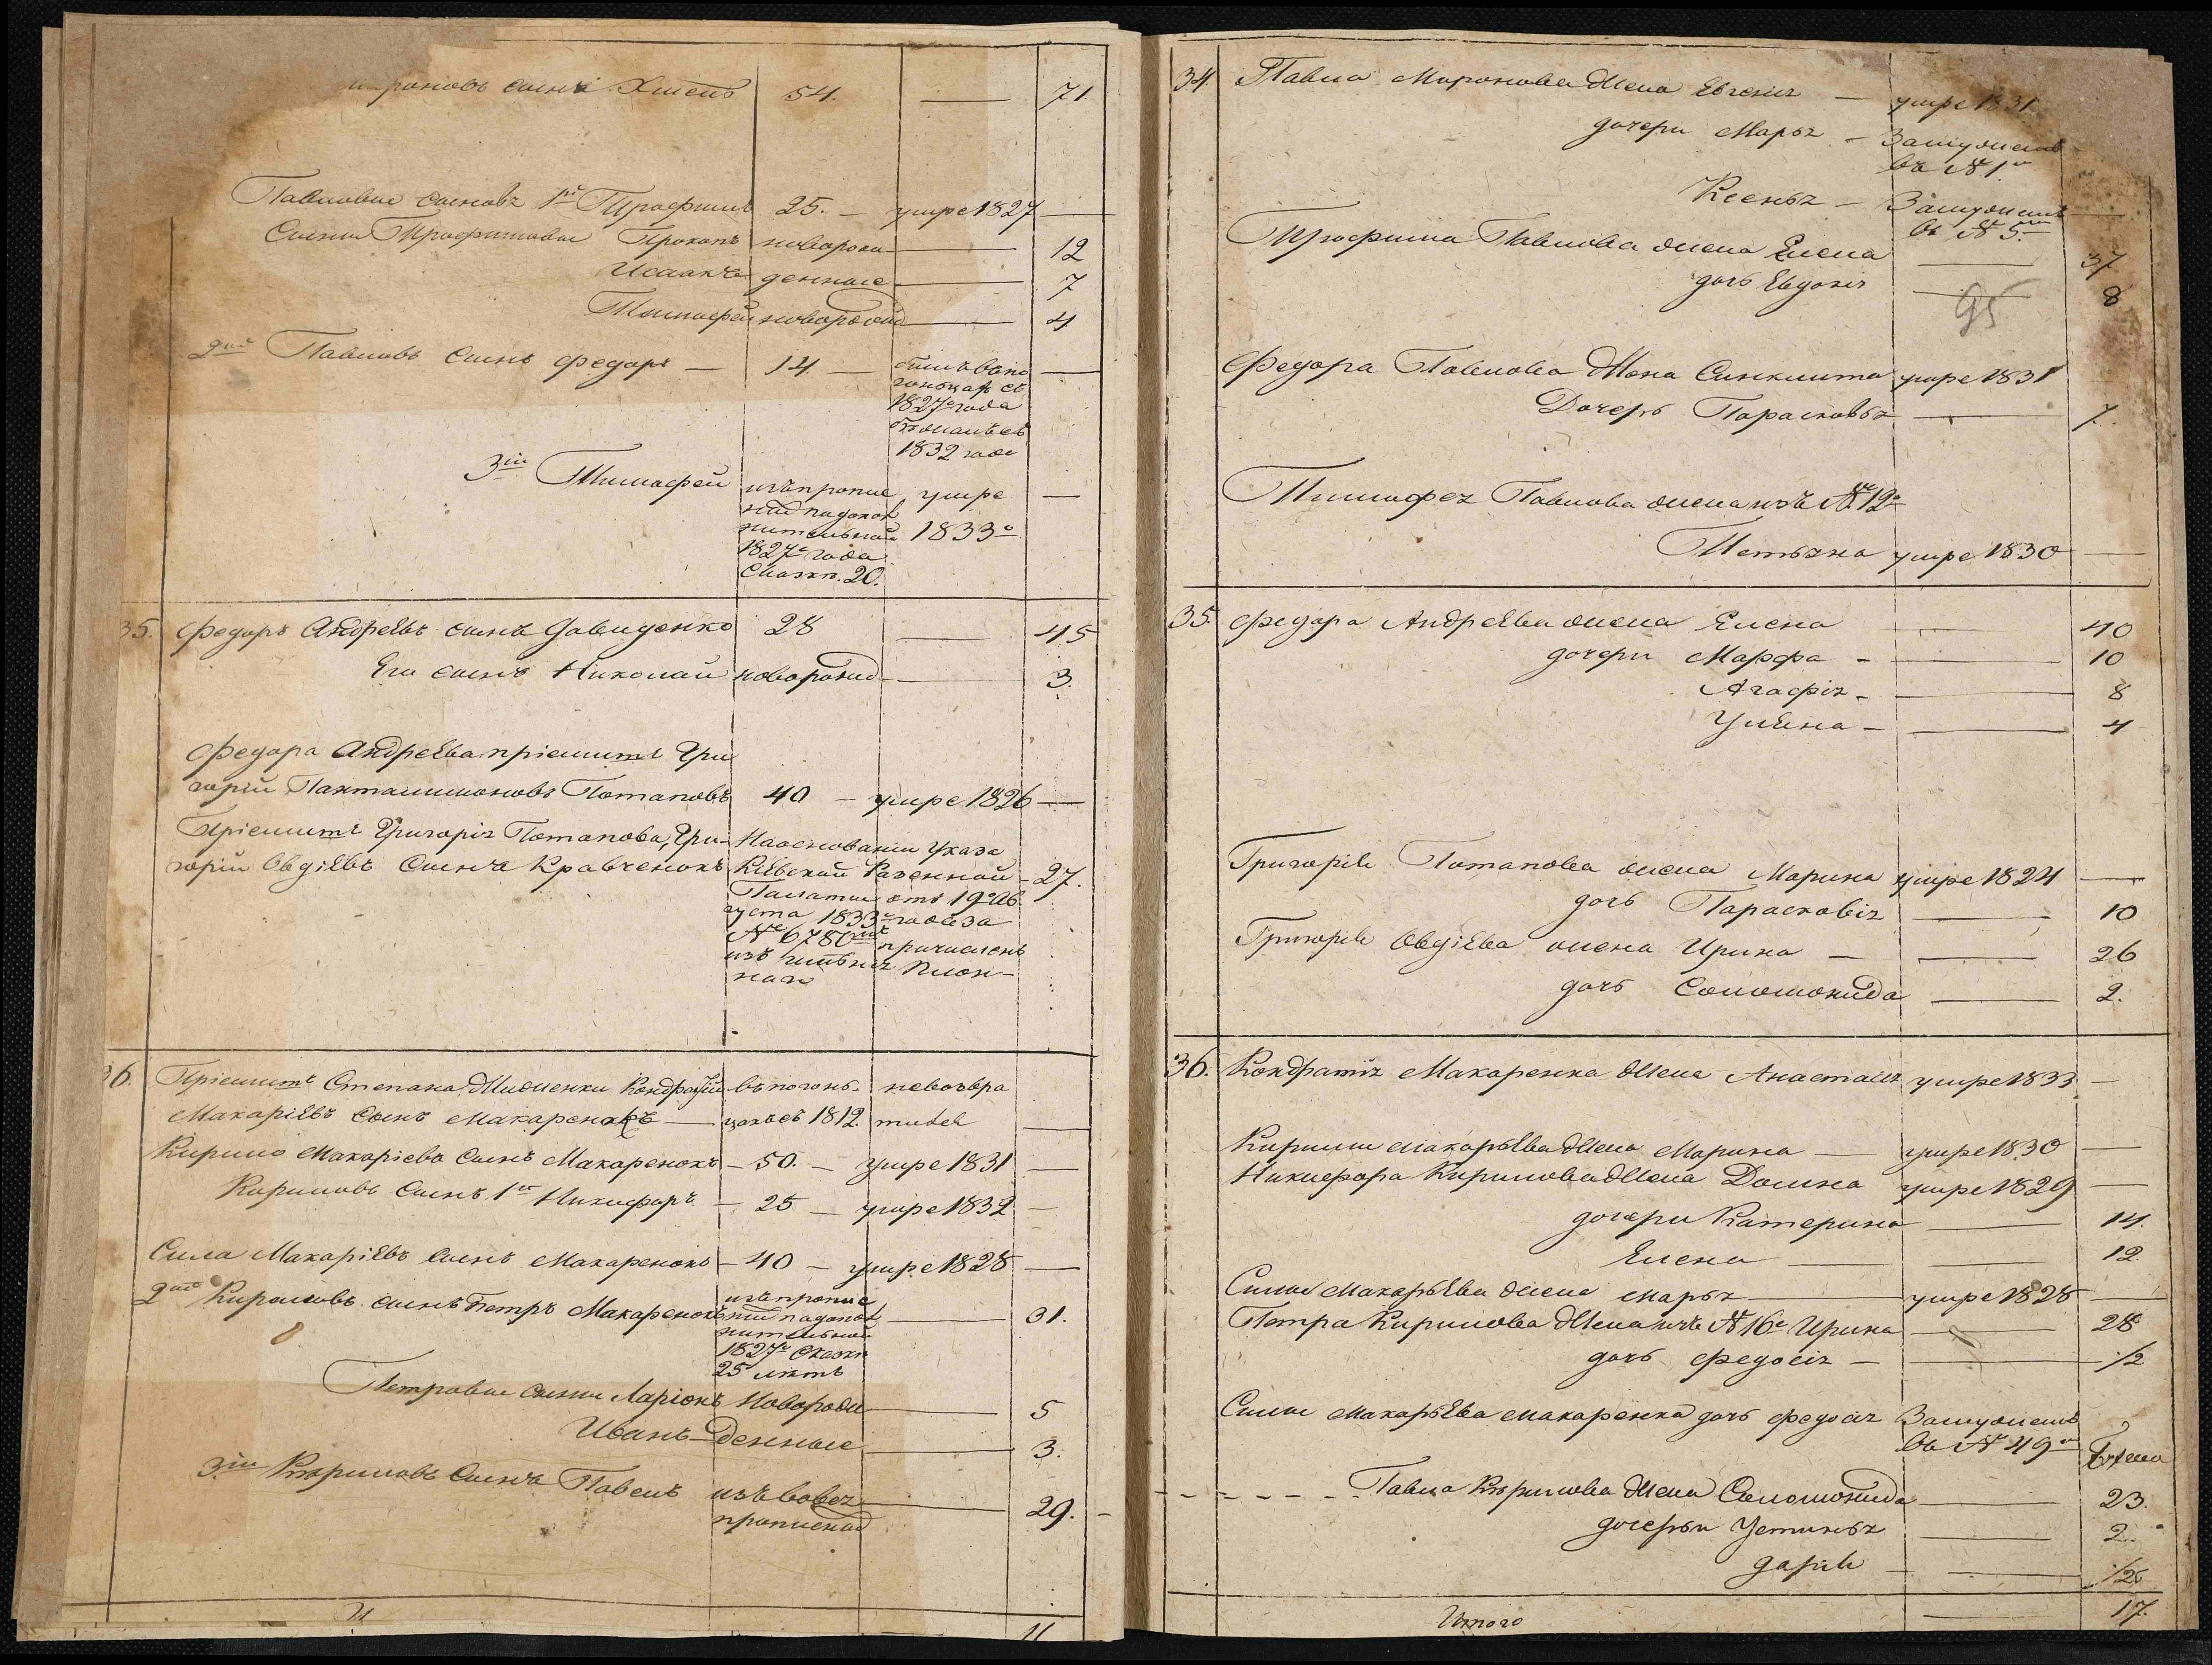 роновъ сынъ Хмель 54. — 71.
Павловы сыновья 1й Трофимъ 25. — умре 1827 —
Сыны Трофимовы Прокопъ новорож — 12
Исаакъ денные — 7
Тимофей новорожд — 4
2й Павловъ сынъ Федоръ — 14 —
1827го года
1832 года
3й Тимофей изъ пропис умре —
ной по допол
нительной 1833го
1827го года
Сказки. 20.
35. Федоръ Андрѣевъ сынъ Давиденко 28 — 45
Его сынъ Николай новорожд — 3.
Федора Андрѣева пріемышъ Гри
горій Пантелимоновъ Потаповъ 40 — умре 1826 —
Пріемышъ Григорія Потапова, Гри- На основаніи указа
горій Овдіевъ сынъ Кравченокъ Кіевской Казенной 27.
Палаты отъ 19го Ав
густа 1833го года за
№ 6780мъ причисленъ
изъ
36. Пріемышъ Степана Мироненки Кондратій въ погонь- невозвра
Макаріевъ сынъ Макаренокъ — цахъ съ 1812. тился —
Кирило Макаріевъ сынъ Макаренокъ — 50. — умре 1831 —
Кириловъ сынъ 1й Никифоръ — 25 — умре 1832 —
Сила Макаріевъ сынъ Макаренокъ — 40 — умре 1828 —
2й Кириловъ сынъ Петръ Макаренокъ изъ пропис — 31.
ной по допол
нительной
1827го Сказки
25 лѣтъ
Петровы сыны Ларіонъ Новорож — 5
Иванъ денные — 3.
3й Кириловъ сынъ Павелъ изъ вовся — 29.
прописной
11
34. Павла Миронова жена Евгенія — умре 1831
дочери Марья — Замужемъ
въ № 1м
Ксенья — Замужемъ —
въ № 5м
Трофима Павлова жена Елена — 37
дочь Евдокія — 8
95
Федора Павлова жена Синклита умре 1831
Дочерь Парасковья — 7.
Тимофея Павлова жена изъ № 12го
Тетьяна умре 1830 —
35. Федора Андрѣева жена Елена — 40
дочери Марфа — 10
Агафія — 8
Ульяна — 4
Григорія Потапова жена Марина умре 1824 —
дочь Парасковія — 10
Григорія Овдіева жена Ирина — 26
дочь Соломонида — 2.
36. Кондратія Макаренка жена Анастасія умре 1833 —
Кирилы Макарьева жена Марина — умре 1830 —
Никифора Кирилова жена Домна умре 1829 —
дочери Катерина — 14.
Елена — 12
Силы Макарьева жена Марья — умре 1828 —
Петра Кирилова жена изъ № 16го Ирина — 28
дочь Федосія — 1/2
Силы Макарьева Макаренка дочь Федосія Замужемъ
въ № 49м
Павла Кирилова жена Соломонида — 23.
дочерьи Устинья — 2.
Дарія — 1/2
Итого — 17.